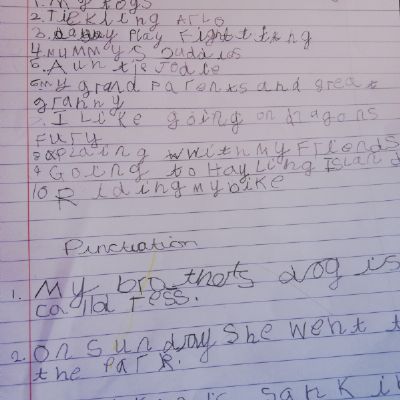 1. My toys
2. Tickling Arlo
3. Daddy Play Fightting
4. mummys cuddles
5. Auntje Jodie
6. my grand Parents and great
granny
7. I Like going on dragons
FURY
8. Playing with my Friends
9. Going to Hayling Island
10. Riding my bike
Punctuation
1. My brother's dog is
calld Tess.
2. On Sunday She went t
the Park.